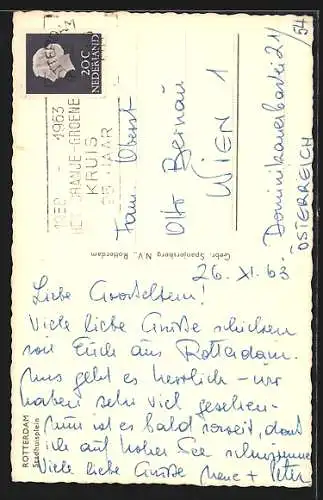 20 C
NEDERLAND
ROTTERDAM
1938 - 1963
HET ORANJE-GROENE
KRUIS
25 JAAR
Fam. Oberst
Otto Bernau
WIEN 1
Dominikanerbastei 21/54
ÖSTERREICH
Gebr. Spanjersberg N.V., Rotterdam
26. XI. 63
Liebe Großeltern!
Viele liebe Grüße schicken
wir Euch aus Rotterdam.
Uns geht es herrlich - wir
haben sehr viel gesehen -
nun ist es bald soweit, daß
wir auf hoher See schwimmen
Viele liebe Grüße + Peter
ROTTERDAM
Stadhuisplein